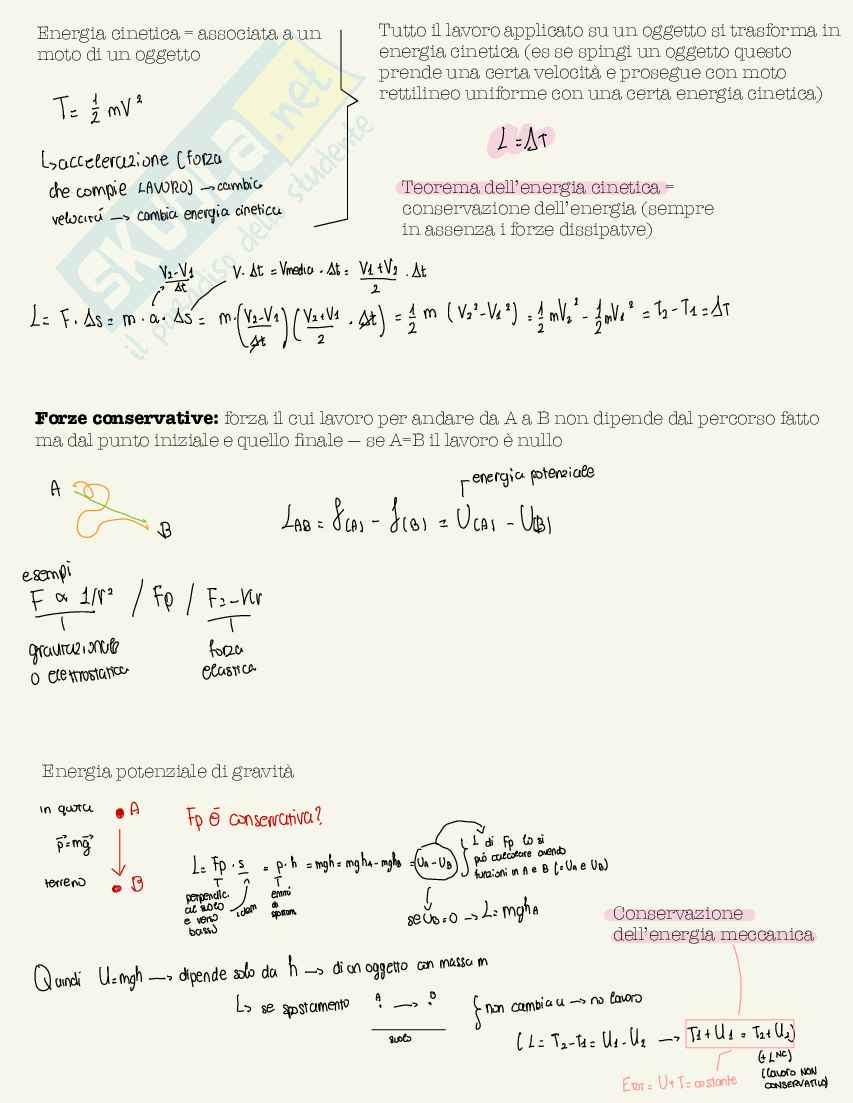 Energia cinetica = associata a un
moto di un oggetto
T = 1/2 mV²
↳ accelerazione (forza
che compie LAVORO) → cambia
velocità → cambia energia cinetica
Tutto il lavoro applicato su un oggetto si trasforma in
energia cinetica (es se spingi un oggetto questo
prende una certa velocità e prosegue con moto
rettilineo uniforme con una certa energia cinetica)
L = ΔT
Teorema dell'energia cinetica =
conservazione dell'energia (sempre
in assenza i forze dissipatve)
SKUOLA.net
il paradiso dello studente
V2-V1/Δt V·Δt = Vmedia · Δt = V1+V2/2 · Δt
L = F · Δs = m · a · Δs = m·(V2-V1/Δt)(V2+V1/2 · Δt) = 1/2 m (V2²-V1²) = 1/2 mV2² - 1/2 mV1² = T2-T1 = ΔT
Forze conservative: forza il cui lavoro per andare da A a B non dipende dal percorso fatto
ma dal punto iniziale e quello finale – se A=B il lavoro è nullo
A
B
energia potenziale
LAB = f(A) - f(B) = U(A) - U(B)
esempi
F ∝ 1/r² / Fp / F=-Kr
gravitazionale
o elettrostatica
forza
elastica
Energia potenziale di gravità
in quota A
p=mg
terreno B
Fp è conservativa?
L = Fp · s = p · h = mgh = mghA - mghB = UA - UB
perpendic.
al suolo
e verso
basso
idem
di
spostam.
L di Fp lo si
può calcolare avendo
funzioni in A e B (= UA e UB)
se UB=0 → L = mghA
Conservazione
dell'energia meccanica
Quindi U=mgh → dipende solo da h → di un oggetto con massa m
↳ se spostamento A → B
suolo
{ non cambia u → no lavoro
(L = T2-T1 = U1-U2 → T1+U1 = T2+U2)
(+ LNC)
(lavoro NON
CONSERVATIVO)
ETOT = U+T = costante